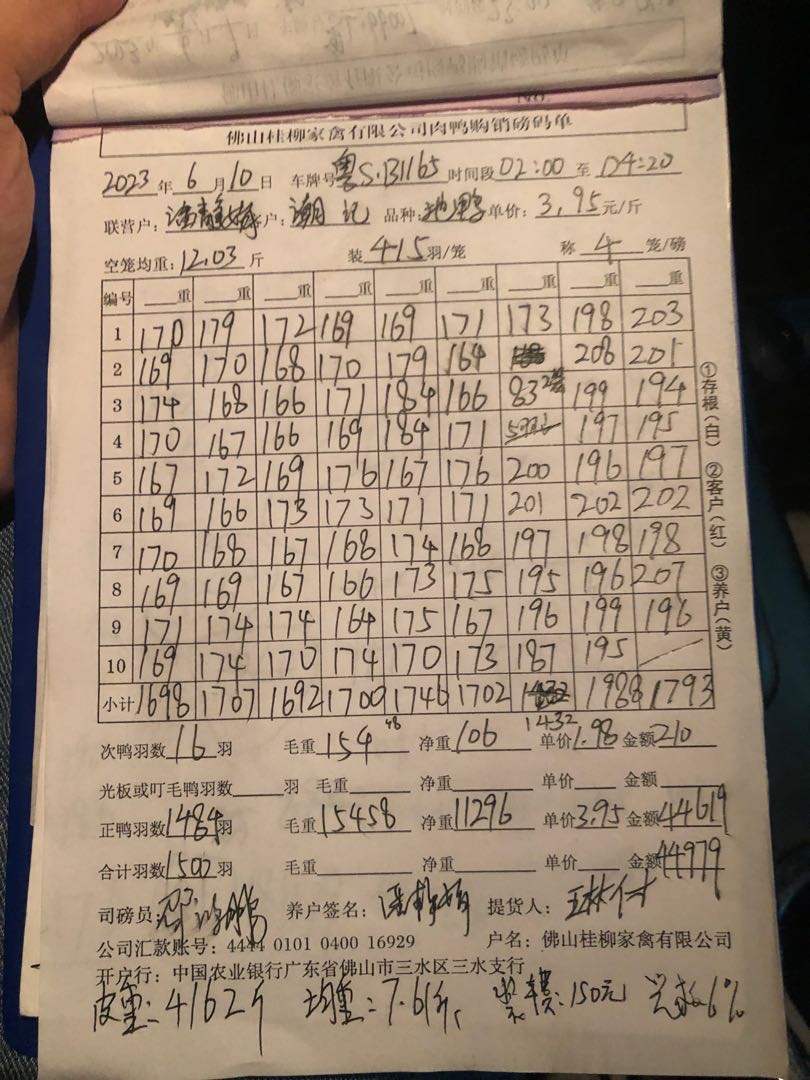 佛山桂柳家禽有限公司肉鸭购销磅码单
2023年6月10日 车牌号粤S·B1165 时间段02:00至04:20
联营户: 客户:潮记 品种:地鸭 单价:3.95元/斤
空笼均重:12.03斤 装415羽/笼 称4笼/磅
编号 重 重 重 重 重 重 重 重 重
1 170 179 172 169 169 171 173 198 203
2 169 170 168 170 179 164 208 201
3 174 168 166 171 184 166 83 199 194
4 170 167 166 169 184 171 197 195
5 167 172 169 176 167 176 200 196 197
6 169 166 173 173 171 171 201 202 202
7 170 168 167 168 174 168 197 198 198
8 169 169 167 166 173 175 195 196 207
9 171 174 174 164 175 167 196 199 196
10 169 174 170 174 170 173 187 195
小计 1698 1707 1692 1700 1746 1702 1432 1988 1793
次鸭羽数16羽 毛重154 48 净重106 单价1.98 金额210
光板或叮毛鸭羽数 羽 毛重 净重 单价 金额
正鸭羽数1484羽 毛重15458 净重11296 单价3.95 金额44619
合计羽数1502羽 毛重 净重 单价 金额44979
司磅员: 养户签名: 提货人:王林仁
公司汇款账号:4444 0101 0400 16929 户名:佛山桂柳家禽有限公司
开户行:中国农业银行广东省佛山市三水区三水支行
皮重:4162斤 均重:7.61斤 装车费:150元 6%
①存根(白) ②客户(红) ③养户(黄)